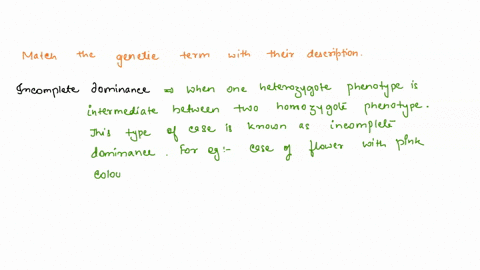 Match the genetic term with their description.
Incomplete dominance ⇒ when one heterozygote phenotype is
intermediate between two homozygote phenotype.
This type of case is known as incomplete
dominance. For eg:- case of flower with pink
colou